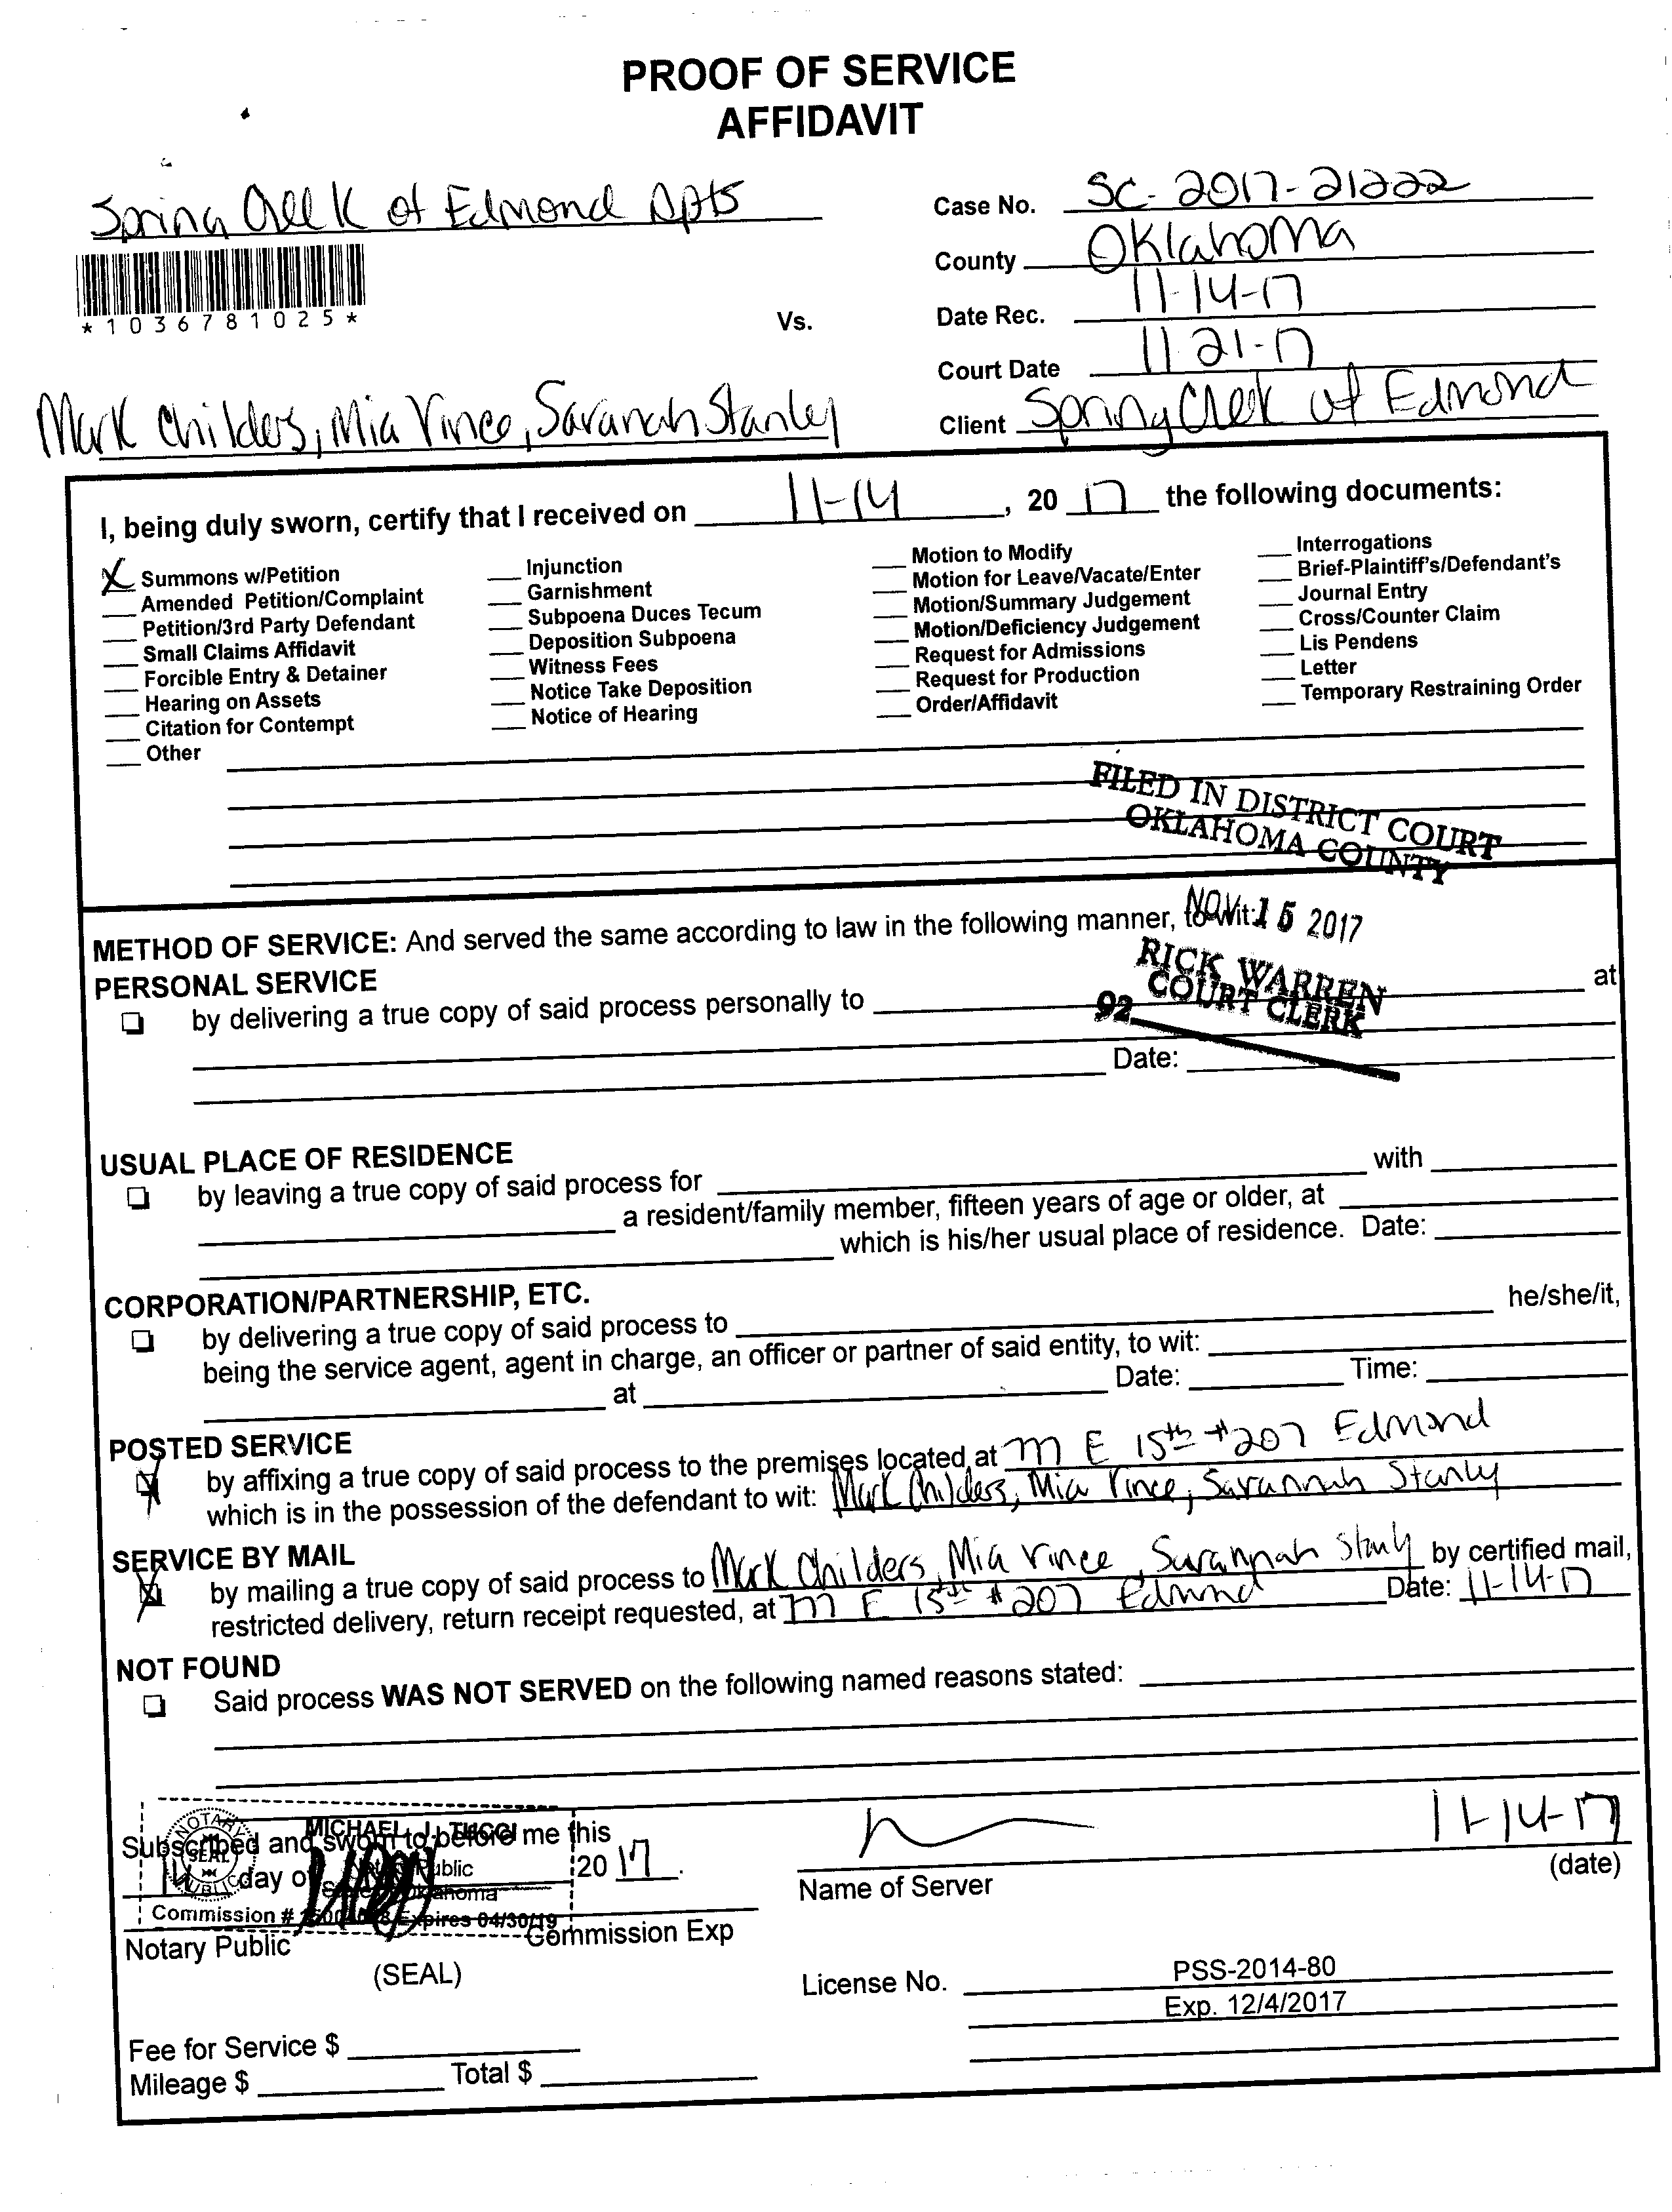 PROOF OF SERVICE
AFFIDAVIT
Spring Creek of Edmond Apts
*1036781025*
Vs.
Mark Childers, Mia Vince, Savanah Stanley
Case No. SC-2017-21222
County Oklahoma
Date Rec. 11-14-17
Court Date 11-21-17
Client Spring Creek of Edmond
I, being duly sworn, certify that I received on 11-14, 20 17 the following documents:
X Summons w/Petition
Amended Petition/Complaint
Petition/3rd Party Defendant
Small Claims Affidavit
Forcible Entry & Detainer
Hearing on Assets
Citation for Contempt
Other
Injunction
Garnishment
Subpoena Duces Tecum
Deposition Subpoena
Witness Fees
Notice Take Deposition
Notice of Hearing
Motion to Modify
Motion for Leave/Vacate/Enter
Motion/Summary Judgement
Motion/Deficiency Judgement
Request for Admissions
Request for Production
Order/Affidavit
Interrogations
Brief-Plaintiff's/Defendant's
Journal Entry
Cross/Counter Claim
Lis Pendens
Letter
Temporary Restraining Order
FILED IN DISTRICT COURT
OKLAHOMA COUNTY
NOV 15 2017
RICK WARREN
COURT CLERK
92
METHOD OF SERVICE: And served the same according to law in the following manner, to wit:
PERSONAL SERVICE
by delivering a true copy of said process personally to at
Date:
USUAL PLACE OF RESIDENCE
by leaving a true copy of said process for with
a resident/family member, fifteen years of age or older, at
which is his/her usual place of residence. Date:
CORPORATION/PARTNERSHIP, ETC.
by delivering a true copy of said process to he/she/it,
being the service agent, agent in charge, an officer or partner of said entity, to wit:
at Date: Time:
POSTED SERVICE
by affixing a true copy of said process to the premises located at 777 E 15th #207 Edmond
which is in the possession of the defendant to wit: Mark Childers, Mia Vince, Savannah Stanly
SERVICE BY MAIL
by mailing a true copy of said process to Mark Childers, Mia Vince, Savannah Stanly by certified mail,
restricted delivery, return receipt requested, at 777 E 15th #207 Edmond Date: 11-14-17
NOT FOUND
Said process WAS NOT SERVED on the following named reasons stated:
Subscribed and sworn to before me this
14 day of 20 17.
NOTARY PUBLIC SEAL
MICHAEL J. TUCCI
Notary Public
State of Oklahoma
Commission # Expires 04/30/19
Notary Public Commission Exp
(SEAL)
11-14-17
Name of Server (date)
License No. PSS-2014-80
Exp. 12/4/2017
Fee for Service $
Mileage $ Total $